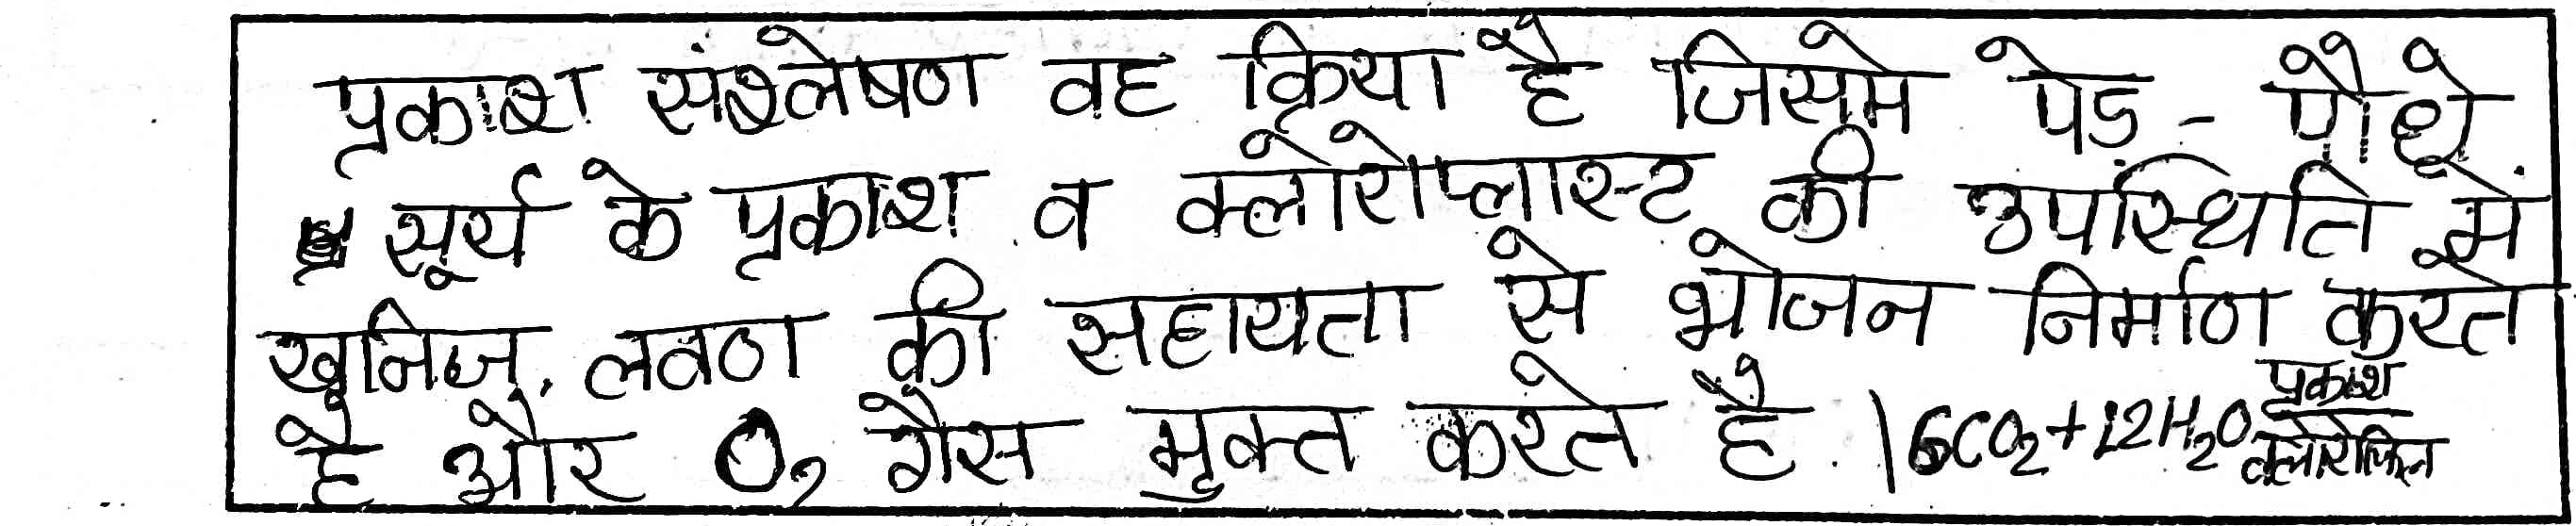 प्रकाश संश्लेषण वह क्रिया है जिसमे पेड - पौधे
सूर्य के प्रकाश व क्लोरोप्लास्ट की उपस्थिति में
खनिज, लवण की सहायता से भोजन निर्माण करते
है और O₂ गैस मुक्त करते है । 6CO₂+12H₂O प्रकाश
क्लोरोफिल